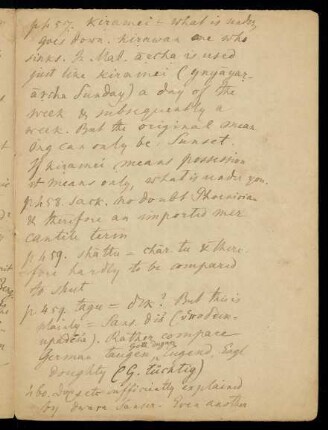 p. 457. kiramei = what is under,
goes down. kirawan one who
sinks. In Mal. āzcha is used
just like kiramei (
āzcha Sunday) a day of the
week & subsequently a
week. But the original mean
ing can only be Sunset.
If kiramei means possession
it means only, what is under you.
p. 458. sack. no doubt Phoenician
& therefore an imported mer
cantile term
p. 459. shāttu = char. tu & there
fore hardly to be compared
to shut
p. 459. tagu = ? But this is
plainly = Sans.
Rather compare
German taugen, Tugend, Engl
doughty (G. tüchtig)
sufficiently explained
by Even another